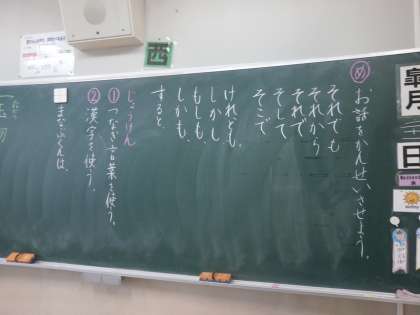 皐月
日
西
め お話をかんせいさせよう。
それでも
それから
それで
そして
そこで
けれども、
しかし
もしも、
しかも、
すると、
じょうけん
① つなぎ言葉を使う。
② 漢字を使う。